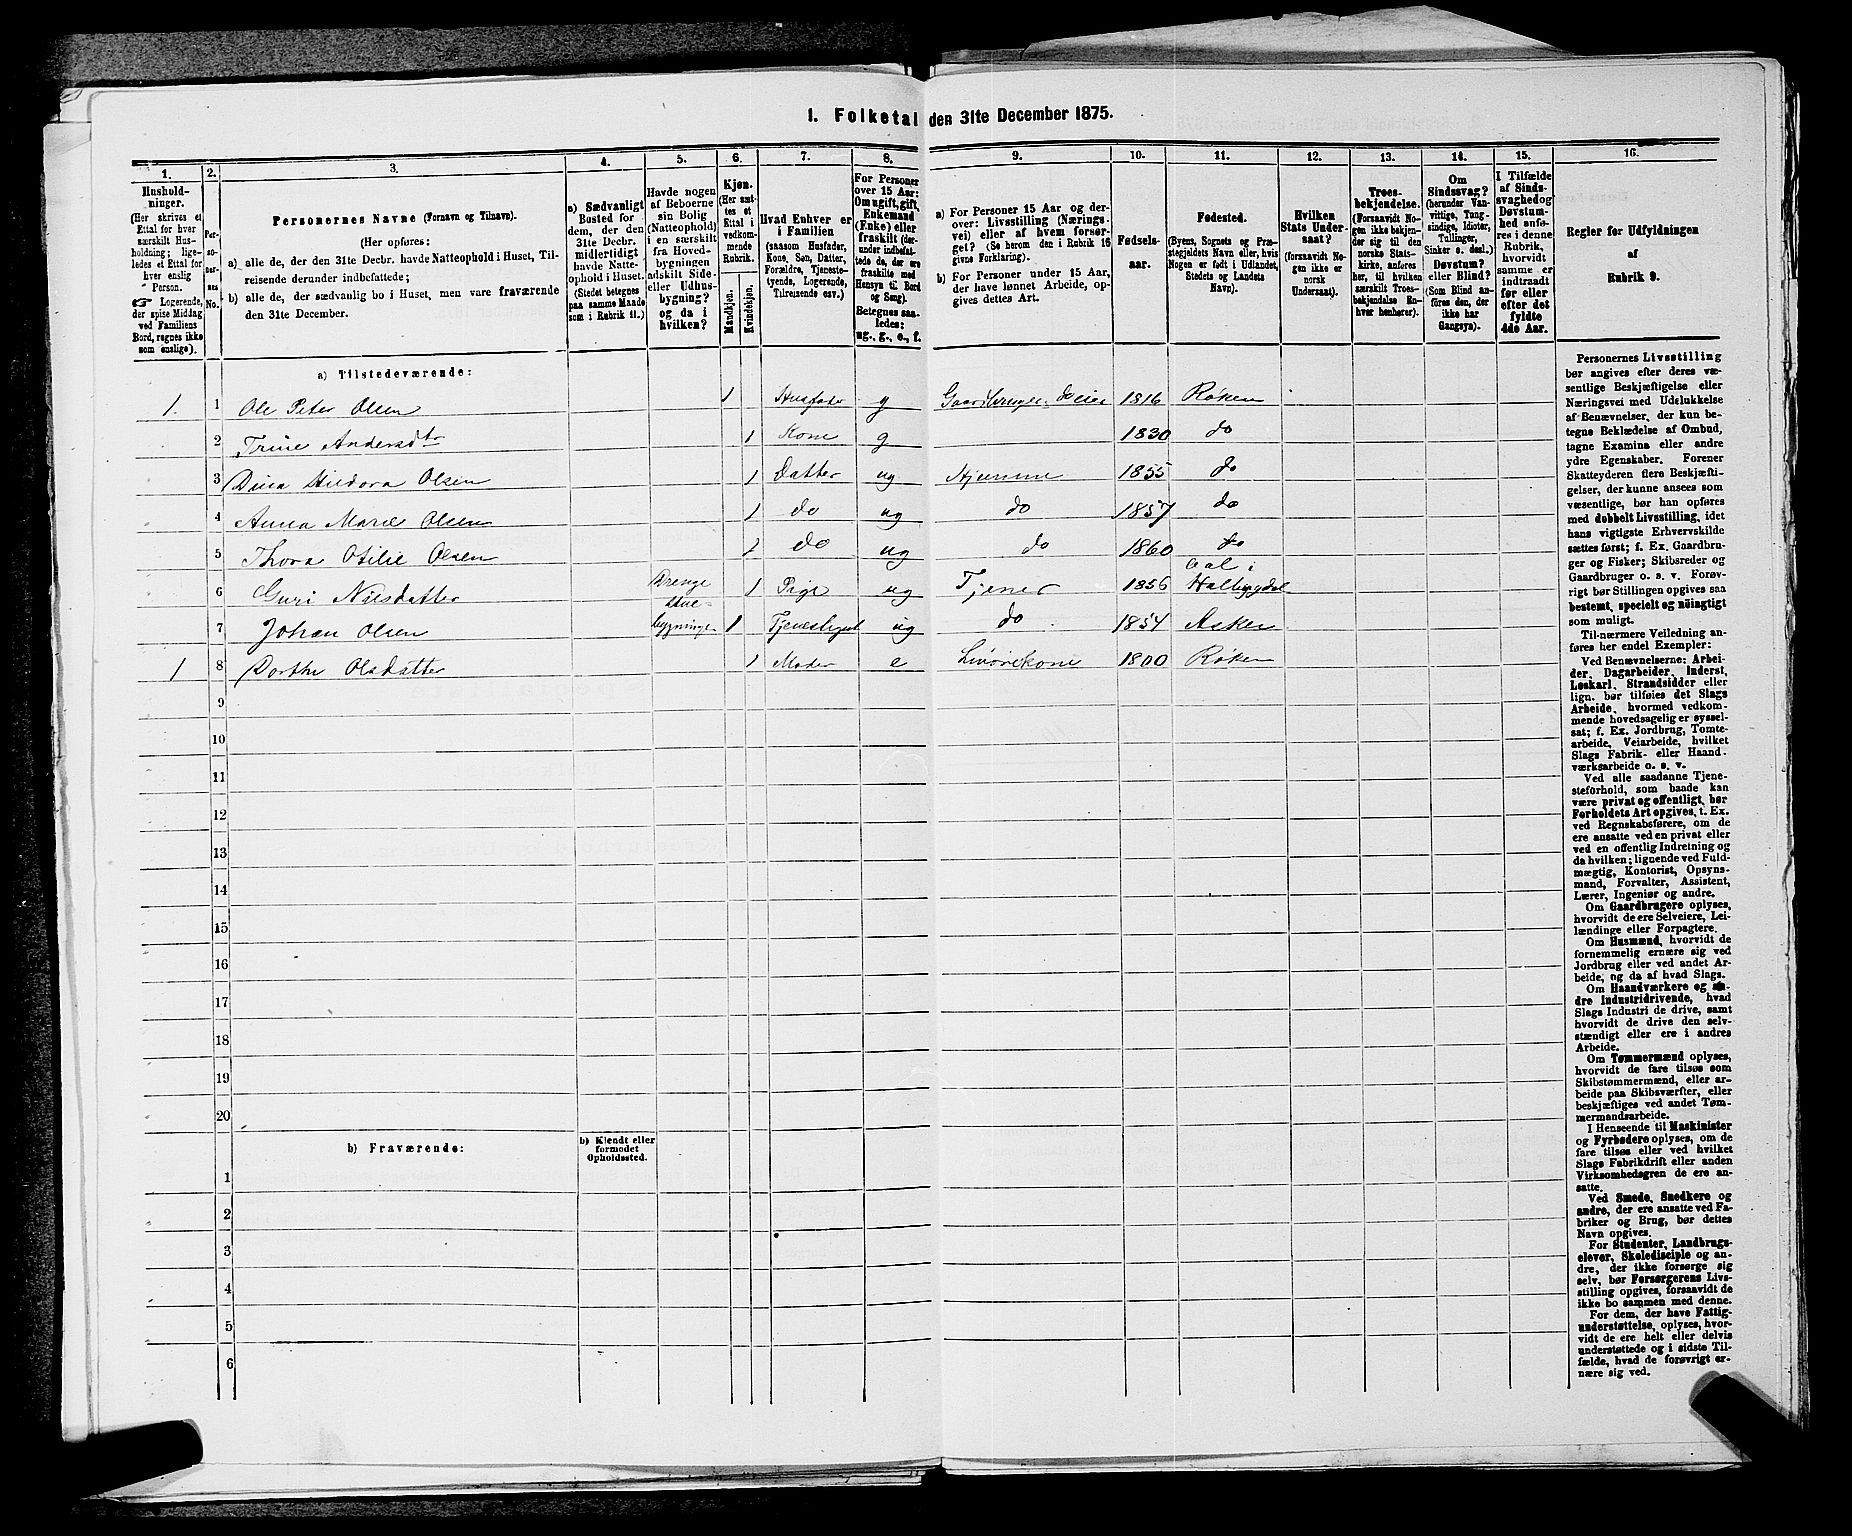 1. Folketal den 31te December 1875.
1.
Hushold-
ninger.
(Her skrives et
Ettal for hver
særskilt Hus-
holdning; lige-
ledes et Ettal for
hver enslig
Person.
☞ Logerende,
der spise Middag
ved Familiens
Bord, regnes ikke
som enslige).
2.
Per-
so-
ner-
ses
No.
3.
Personernes Navne (Fornavn og Tilnavn).
(Her opføres:
a) alle de, der den 31te Decbr. havde Natteophold i Huset, Til-
reisende derunder indbefattede;
b) alle de, der sædvanlig bo i Huset, men vare fraværende
den 31te December.
4.
a) Sædvanligt
Bosted for
dem, der den
31te Decbr.
midlertidigt
havde Natte-
ophold i Huset.
(Stedet betegnes
paa samme Maade
som i Rubrik 11.)
5.
Havde nogen
af Beboerne
sin Bolig
(Natteophold)
i en særskilt
fra Hoved-
bygningen
adskilt Side-
eller Udhus-
bygning?
og da i
hvilken?
6.
Kjøn.
(Her sæt-
tes et
Ettal i
vedkom-
mende
Rubrik.
Mandkjøn.
Kvindekjøn.
7.
Hvad Enhver er
i Familien
(saasom Husfader,
Kone, Søn, Datter,
Forældre, Tjeneste-
tyende, Logerende,
Tilreisende osv.)
8.
For Personer
over 15 Aar:
Om ugift, gift,
Enkemand
(Enke) eller
fraskilt (der-
under indbefat-
tede de, der ere
fraskilte med
Hensyn til Bord
og Seng).
Betegnes saa-
ledes:
ug., g., e., f.
9.
a) For Personer 15 Aar og der-
over: Livsstilling (Nærings-
vei) eller af hvem forsør-
get? (Se herom den i Rubrik 16
givne Forklaring).
b) For Personer under 15 Aar,
der have lønnet Arbeide, op-
gives dettes Art.
10.
Fødsels-
aar.
11.
Fødested.
(Byens, Sognets og Præ-
stegjeldets Navn eller, hvis
Nogen er født i Udlandet,
Stedets og Landets
Navn).
12.
Hvilken
Stats Under-
saat?
(forsaavidt No-
gen ikke er
norsk
Undersaat).
13.
Troes-
bekjendelse.
(Forsaavidt No-
gen ikke bekjen-
der sig til den
norske Stats-
kirke, anføres
her, til hvilken
særskilt Troes-
bekjendelse En-
hver henhører).
14.
Om
Sindssvag?
(herunder Van-
vittige, Tung-
sindige, Idioter,
Tullinger,
Sinker o. desl.)
Døvstum?
eller Blind?
(Som Blind an-
føres den, der
ikke har
Gangsyn).
15.
I Tilfælde
af Sinds-
svaghed og
Døvstum-
hed anfø-
res i denne
Rubrik,
hvorvidt
samme er
indtraadt
før eller
efter det
fyldte
4de Aar.
16.
Regler for Udfyldningen
af
Rubrik 9.
a) Tilstedeværende:
1. 1 Ole Peter Olsen 1 Husfader g Gaardbruger Seleier 1816 Røken
2 Trine Andersdtr 1 Kone g 1830 do
3 Dina Hildora Olsen 1 Datter ug Hjemme 1855 do
4 Anna Marie Olsen 1 do ug do 1857 do
5 Thora Otilie Olsen 1 do ug do 1860 do
6 Guri Nilsdatter Drenge 1 Pige ug Tjener 1856 Aal i Hallingdal
7 Johan Olsen Stue- bygningen 1 Tjenestegut ug do 1854 Asker
1 8 Dorthe Olsdatter 1 Moder e Livørekone 1800 Røken
9
10
11
12
13
14
15
16
17
18
19
20
b) Fraværende:
b) Kjendt eller
formodet
Opholdssted.
1
2
3
4
5
6
Personernes Livsstilling
bør angives efter deres væ-
sentlige Beskjæftigelse eller
Næringsvei med Udelukkelse
af Benævnelser, der kun be-
tegne Beklædelse af Ombud,
tagne Examina eller andre
ydre Egenskaber. Forener
Skatteyderen flere Beskjæfti-
gelser, der kunne ansees som
væsentlige, bør han opføres
med dobbelt Livsstilling, idet
hans vigtigste Erhvervskilde
sættes først; f. Ex. Gaardbru-
ger og Fisker; Skibsreder og
Gaardbruger o. s. v. Forøv-
rigt bør Stillingen opgives saa
bestemt, specielt og nøiagtigt
som muligt.
Til nærmere Veiledning an-
føres her endel Exempler:
Ved Benævnelserne: Arbei-
der, Dagarbeider, Inderst,
Løskarl, Strandsidder eller
lign. bør tilføies det Slags
Arbeide, hvormed vedkom-
mende hovedsagelig er syssel-
sat; f. Ex. Jordbrug, Tomte-
arbeide, Veiarbeide, hvilket
Slags Fabrik- eller Haand-
værksarbeide o. s. v.
Ved alle saadanne Tjene-
steforhold, som baade kan
være privat og offentligt, bør
Forholdets Art opgives, t. Ex.
ved Regnskabsførere, om de
ere ansatte ved en privat eller
ved en offentlig Indretning og
da hvilken; lignende ved Fuld-
mægtig, Kontorist, Opsyns-
mand, Forvalter, Assistent,
Lærer, Ingeniør og andre.
Om Gaardbrugere oplyses,
hvorvidt de ere Selveiere, Lei-
lændinge eller Forpagtere.
Om Husmænd, hvorvidt de
fornemmelig ernære sig ved
Jordbrug eller ved andet Ar-
beide, og da af hvad Slags.
Om Haandværkere og an-
dre Industridrivende, hvad
Slags Industri de drive, samt
hvorvidt de drive den selv-
stændigt eller ere i andres
Arbeide.
Om Tømmermænd oplyses,
hvorvidt de fare tilsøs som
Skibstømmermænd, eller ar-
beide paa Skibsværfter, eller
beskjæftiges ved andet Tøm-
mermandsarbeide.
I Henseende til Maskinister
og Fyrbødere oplyses, om de
fare tilsøs eller ved hvilket
Slags Fabrikdrift eller anden
Virksomhedsgren de ere an-
satte.
Ved Smede, Snedkere og
andre, der ere ansatte ved Fa-
briker og Brug, bør dettes
Navn opgives.
For Studenter, Landbrugs-
elever, Skoledisciple og an-
dre, der ikke forsørge sig
selv, bør Forsørgerens Livs-
stilling opgives, forsaavidt de
ikke bo sammen med denne.
For dem, der have Fattig-
understøttelse, oplyses, hvor-
vidt de ere helt eller delvis
understøttede og i sidste Til-
fælde, hvad de forøvrigt er-
nære sig ved.